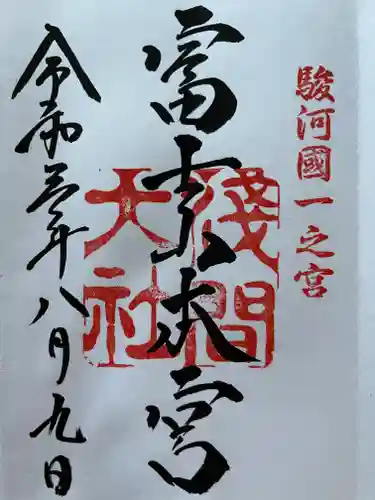 駿河國一之宮
富士本宮
淺間大社
令和三年八月九日